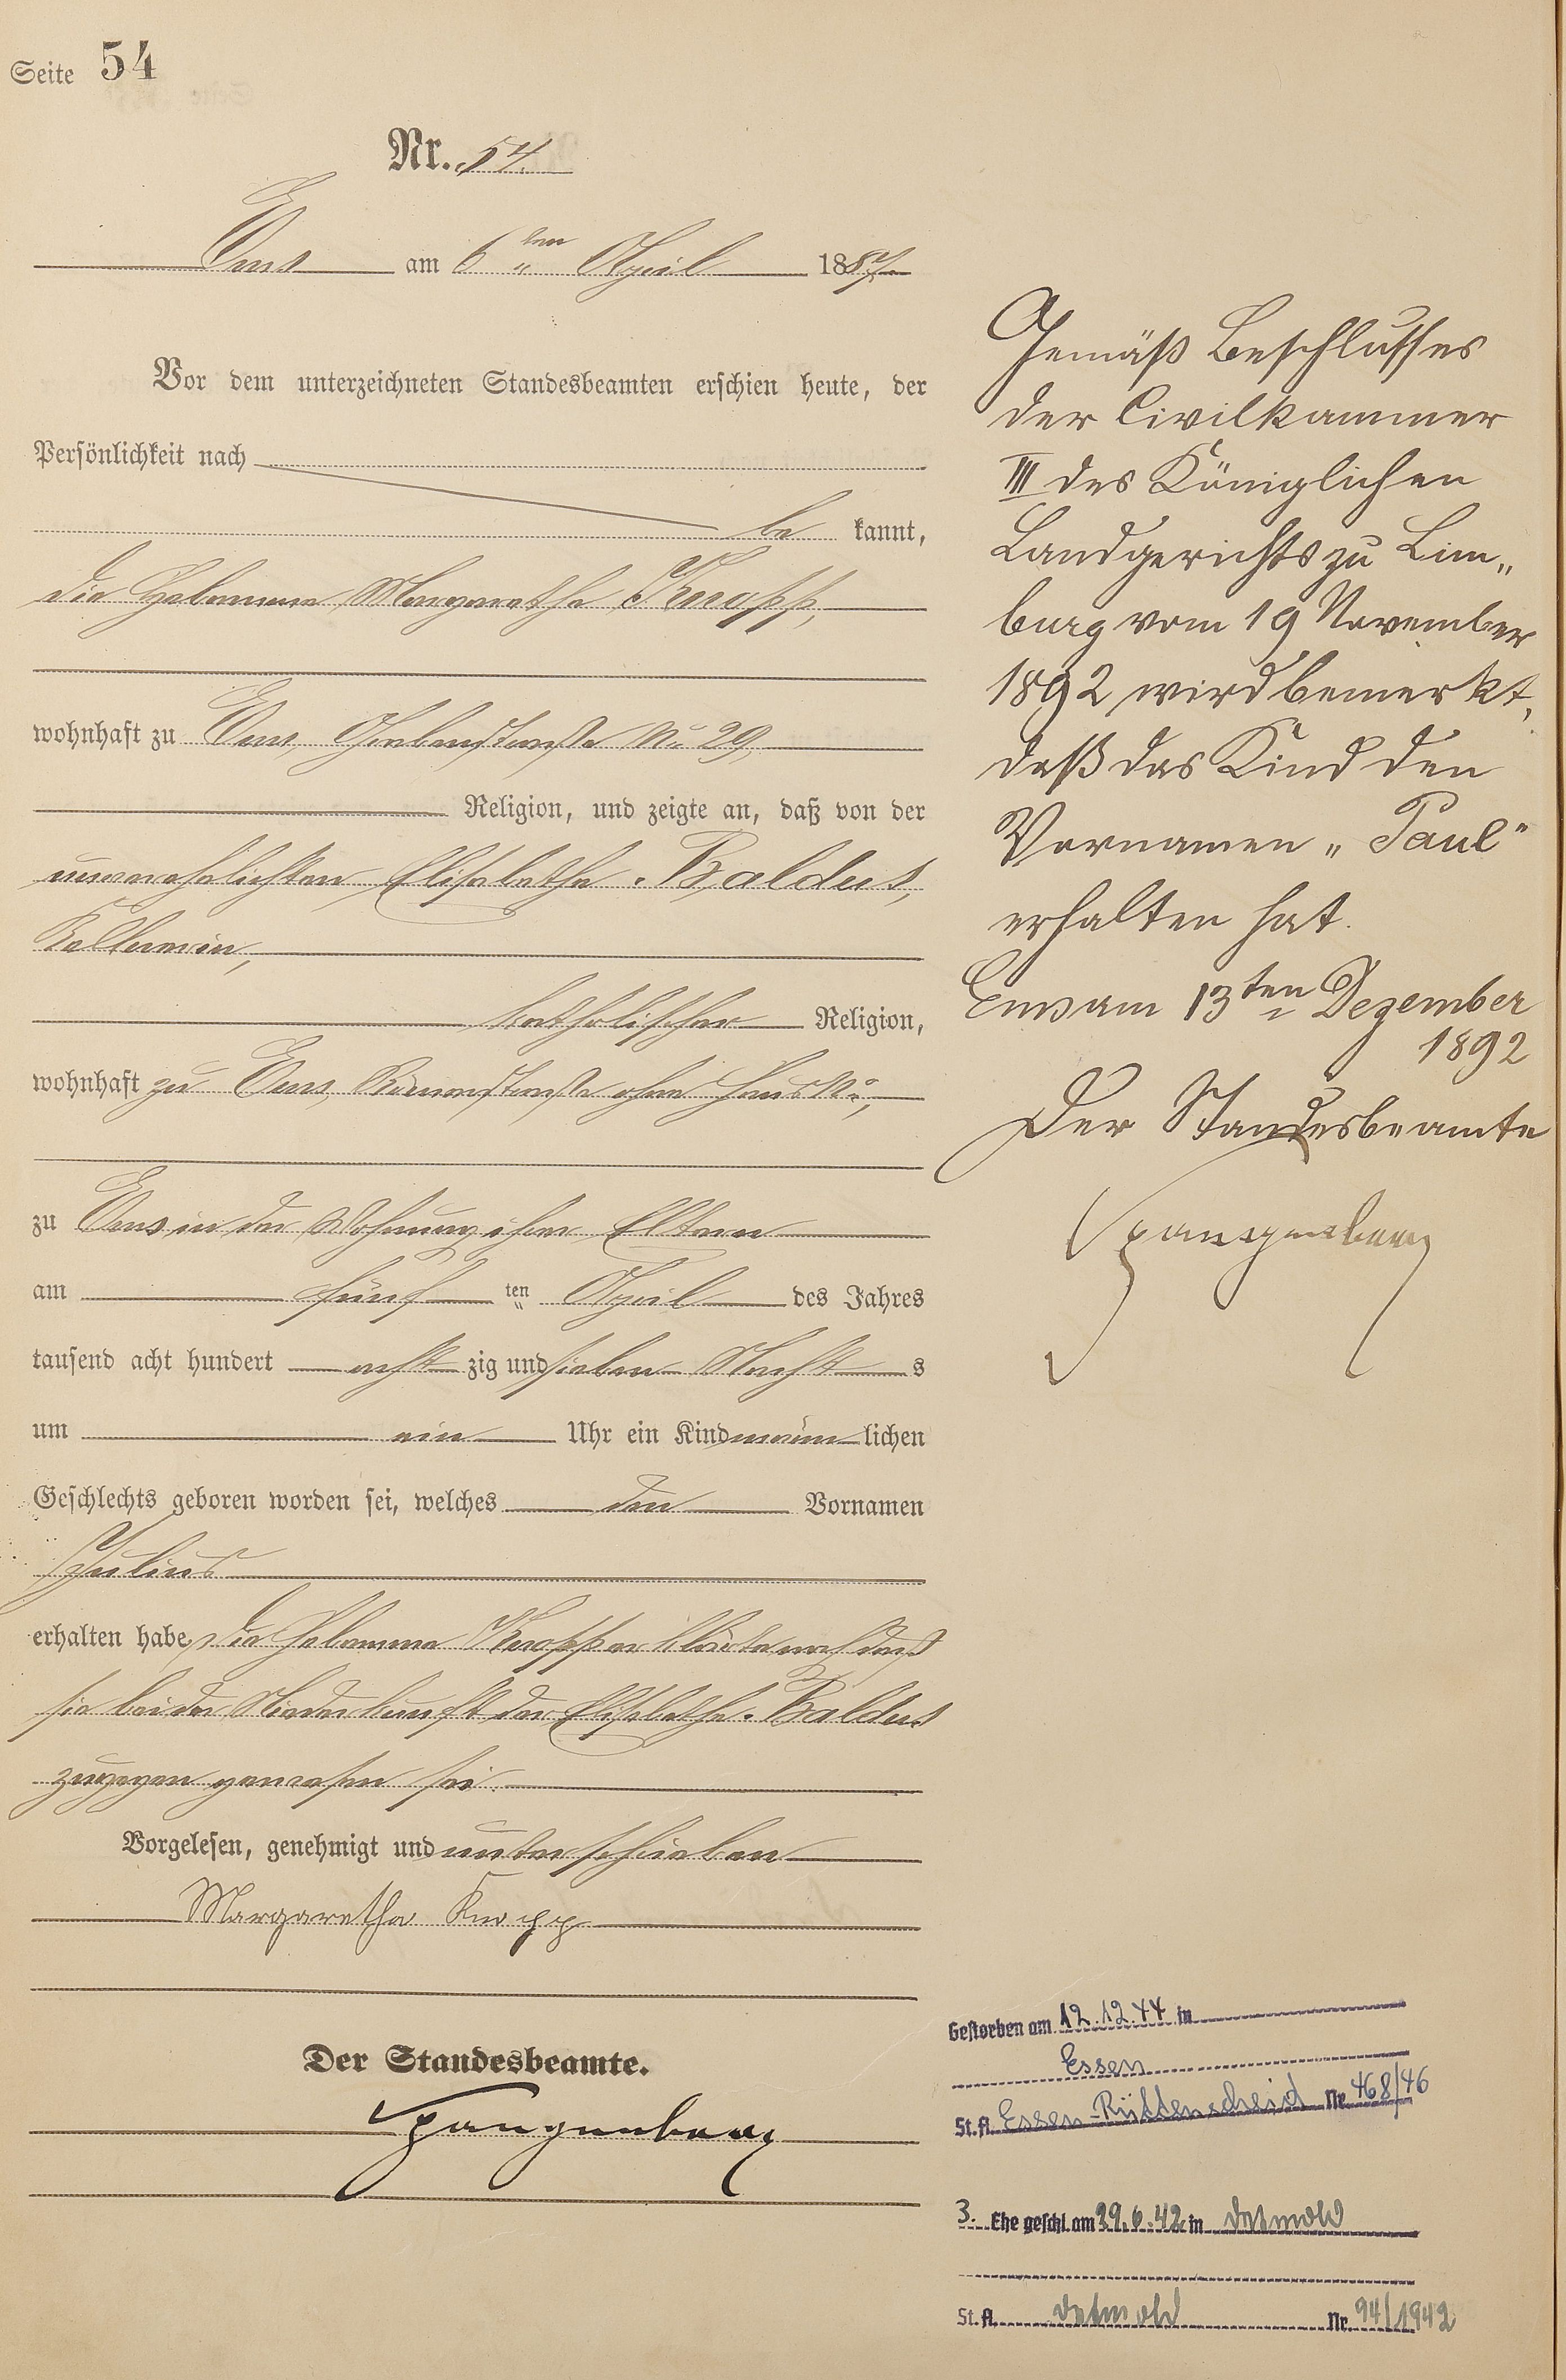 Seite 54
Nr. 54.
Ems am 6ten April 1887.
Vor dem unterzeichneten Standesbeamten erschien heute, der
Persönlichkeit nach
be kannt,
die Hebamme Margaretha Knopp,
wohnhaft zu Ems, Grabenstraße No 29,
Religion, und zeigte an, daß von der
unverehelichten Elisabetha Baldus,
Kellnerin,
katholischer Religion,
wohnhaft zu Ems, Römerstraße ohne Haus No,
zu Ems in der Wohnung ihrer Eltern
am fünf ten April des Jahres
tausend acht hundert acht zig und sieben Nacht s
um ein Uhr ein Kind männ lichen
Geschlechts geboren worden sei, welches den Vornamen
Julius
erhalten habe, die Hebamme Knopp erklärte noch daß
sie bei der Niederkunft der Elisabetha Baldus
zugegen gewesen sei.
Vorgelesen, genehmigt und unterschrieben
Margaretha Knopp
Der Standesbeamte.
Spangenberg
Gemäß Beschlusses
der Civilkammer
III des Königlichen
Landgerichts zu Lim„
burg vom 19 November
1892 wird bemerkt,
daß das Kind den
Vornamen „Paul“
erhalten hat.
Ems am 13ten Dezember
1892
Der Standesbeamte
Spangenberg
Gestorben am 12.12.44 in
Essen
St. A. Essen-Rüttenscheid Nr. 468/46
3. Ehe geschl. am 29.6.42 in Detmold
St. A. Detmold Nr. 94/1942